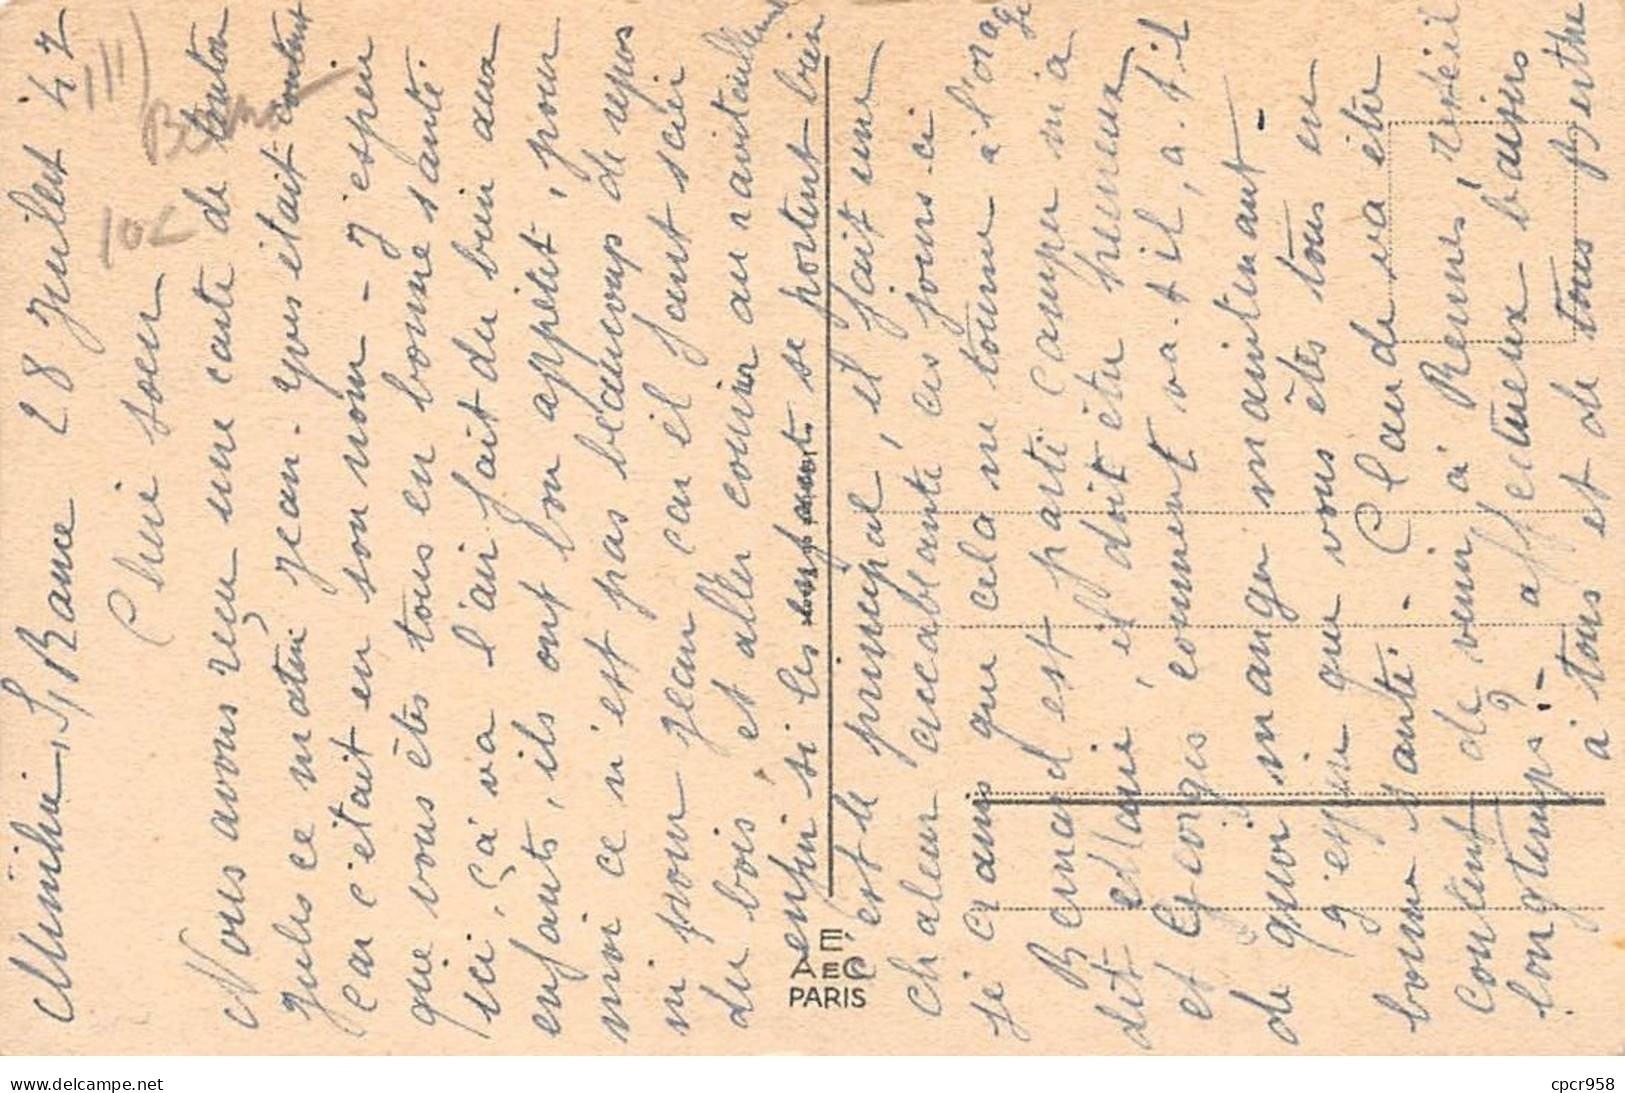 Minihic s/Rance 28 Juillet 47
Chère soeur
Nous avons reçu une carte de tonton
Jules ce matin Jean-Yves était content
car c'était en son nom - J'espère
que vous êtes tous en bonne santé.
ici, çà va l'air fait du bien aux
enfants, ils ont bon appétit, pour
moi ce n'est pas beaucoup de repos
ni pour Jean car il faut scier
du bois, et aller courir au ravitaillement
enfin si les enfants se portent bien
c'est le principal, il fait une
chaleur accablante ces jours-ci
je crains que cela ne tourne à l'orage
Bernard est parti camper m'a
dit Hélène, il doit être heureux
et Georges comment va-t-il, a-t-il
de quoi manger maintenant -
J'espère que vous êtes tous en
bonne santé. Claude va être
content de venir à Rennes,
longtemps? - affectueux baisers
à tous et de tous Berthe
10c
E.
AEC
PARIS
delcampe.net
cpcr958